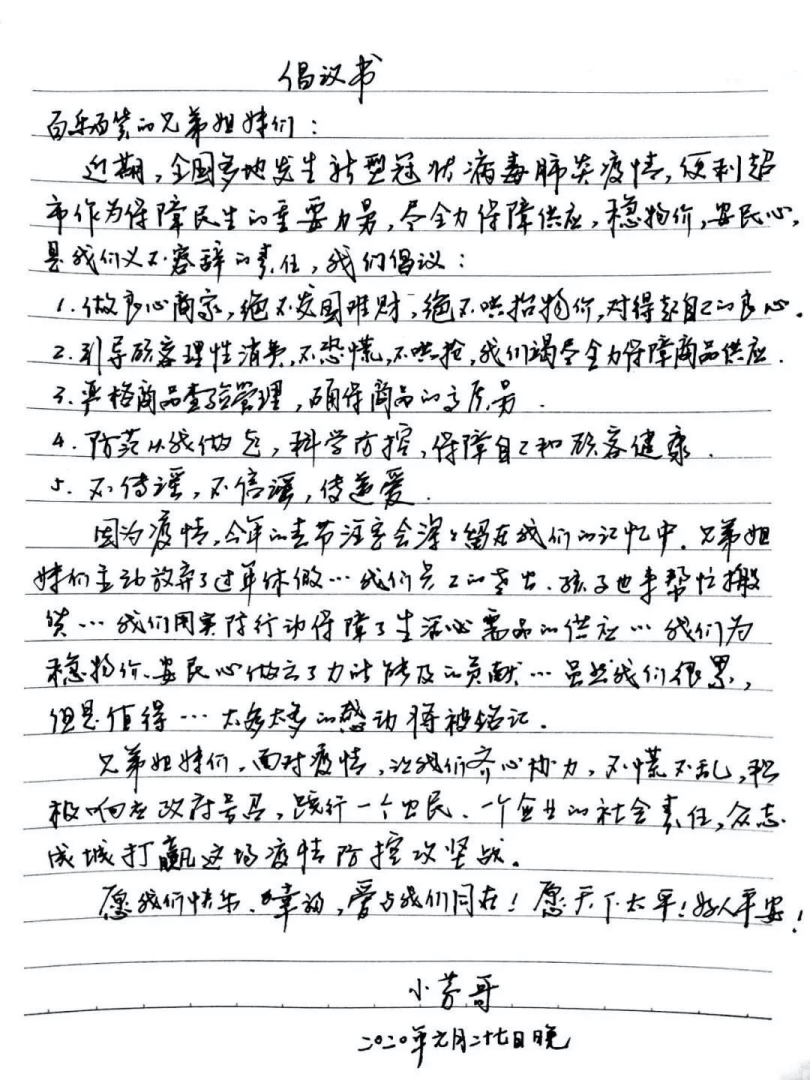 倡议书
百乐百货的兄弟姐妹们：
近期，全国多地发生新型冠状病毒肺炎疫情，便利超
市作为保障民生的重要力量，尽全力保障供应，稳物价，安民心，
是我们义不容辞的责任，我们倡议：
1.做良心商家，绝不发国难财，绝不哄抬物价，对得起自己的良心。
2.引导顾客理性消费，不恐慌，不哄抢，我们竭尽全力保障商品供应.
3.严格商品查验管理，确保商品的高质量.
4.防范从我做起，科学防控，保障自己和顾客健康.
5.不传谣，不信谣，传递爱.
因为疫情，今年的春节注定会深深留在我们的记忆中.兄弟姐
妹们主动放弃了过年休假…我们员工的老公、孩子也来帮忙搬
货…我们用实际行动保障了生活必需品的供应…我们为
稳物价、安民心做出了力所能及的贡献…虽然我们很累，
但是值得…太多太多的感动将被铭记.
兄弟姐妹们，面对疫情，让我们齐心协力，不慌不乱，积
极响应政府号召，践行一个公民、一个企业的社会责任，众志
成城打赢这场疫情防控攻坚战。
愿我们快乐、幸福，爱与我们同在！愿天下太平！好人平安！
小芳哥
二〇二〇年元月二十七日晚